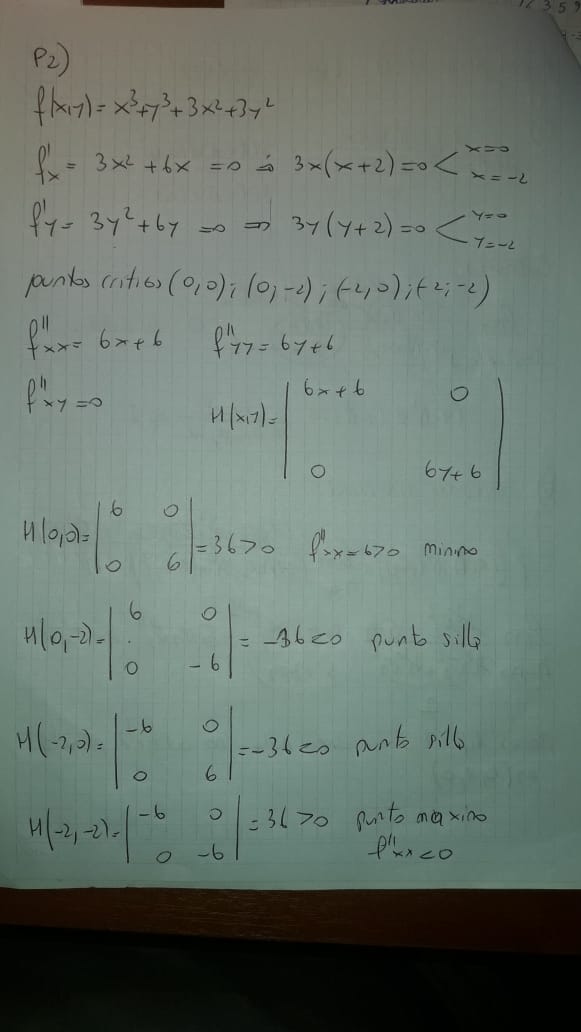 P2)
f(x,y) = x³+y³+3x²+3y²
f'x = 3x² + 6x = 0 ⇒ 3x(x+2)=0 < x=0 x=-2
f'y = 3y²+6y =0 ⇒ 3y(y+2)=0 < y=0 y=-2
puntos criticos (0,0); (0,-2); (-2,0); (-2;-2)
f''xx = 6x+6 f''yy = 6y+6
f''xy =0
H(x,y)= | 6x+6 0 |
| 0 6y+6 |
H(0,0)= | 6 0 | = 36>0 f''xx=6>0 minimo
| 0 6 |
H(0,-2)= | 6 0 | = -36<0 punto silla
| 0 -6 |
H(-2,0)= | -6 0 | =-36<0 punto silla
| 0 6 |
H(-2,-2)= | -6 0 | = 36>0 punto maximo
| 0 -6 | f''xx<0